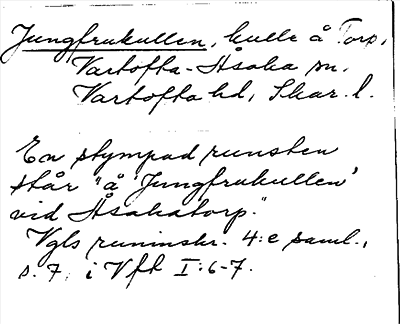 Jungfrukullen, kulle å Torp,
Vartofta-Åsaka sn,
Vartofta hd, Skar. l.
En stympad runsten
står "å 'Jungfrukullen'
vid Åsakatorp."
Vgls runinskr. 4:e saml.,
s. 7, i Vft I:6-7.